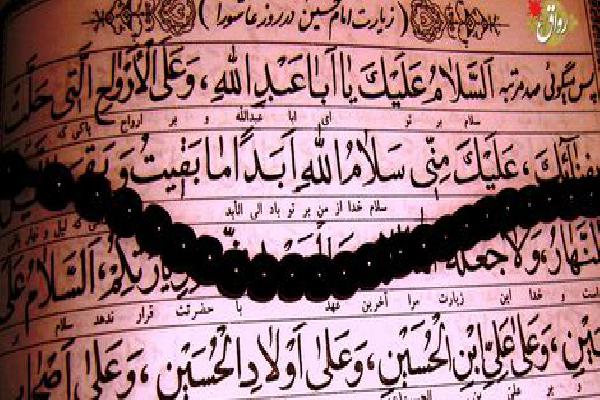 رواق
( زیارت امام حسین در روز عاشورا )
پس میگوئی صد مرتبه اَلسَّلامُ عَلَيْكَ يا اَبا عَبْدِ اللهِ ، وَعَلَى الْاَرْواحِ الَّتى حَلَّتْ
سلام بر تو ای ابا عبدالله و بر ارواح پاکی که
بِفِنائِكَ ، عَلَيْكَ مِنّى سَلامُ اللهِ اَبَداً ما بَقيتُ وَ بَقِىَ
سلام خدا از من بر تو باد الی الأبد که لیل و نهار باقی
النَّهارُ، وَلا جَعَلَهُ زِيارَتِكُمْ، اَلسَّلامُ عَلَى
است و خدا این زیارت مرا آخرین عهد با حضرتت قرار ندهد سلام بر
وَعَلى عَلِىِّ ابْنِ الْحُسَيْنِ، وَعَلى اَوْلادِ الْحُسَيْنِ ، وَعَلى
و بر علی بن